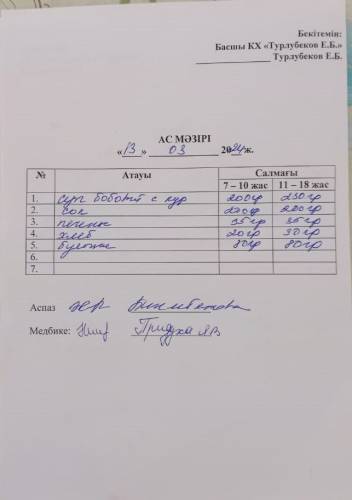 Бекітемін:
Басшы КХ «Турлубеков Е.Б.»
Турлубеков Е.Б.
АС МӘЗІРІ
«13» 03 2024ж.
№ Атауы Салмағы
7 – 10 жас 11 – 18 жас
1. суп бобовый с кур 200гр 250гр
2. сок 200гр 200гр
3. печенье 35гр 35гр
4. хлеб 20гр 30гр
5. 80гр 80гр
6.
7.
Аспаз
Медбике: